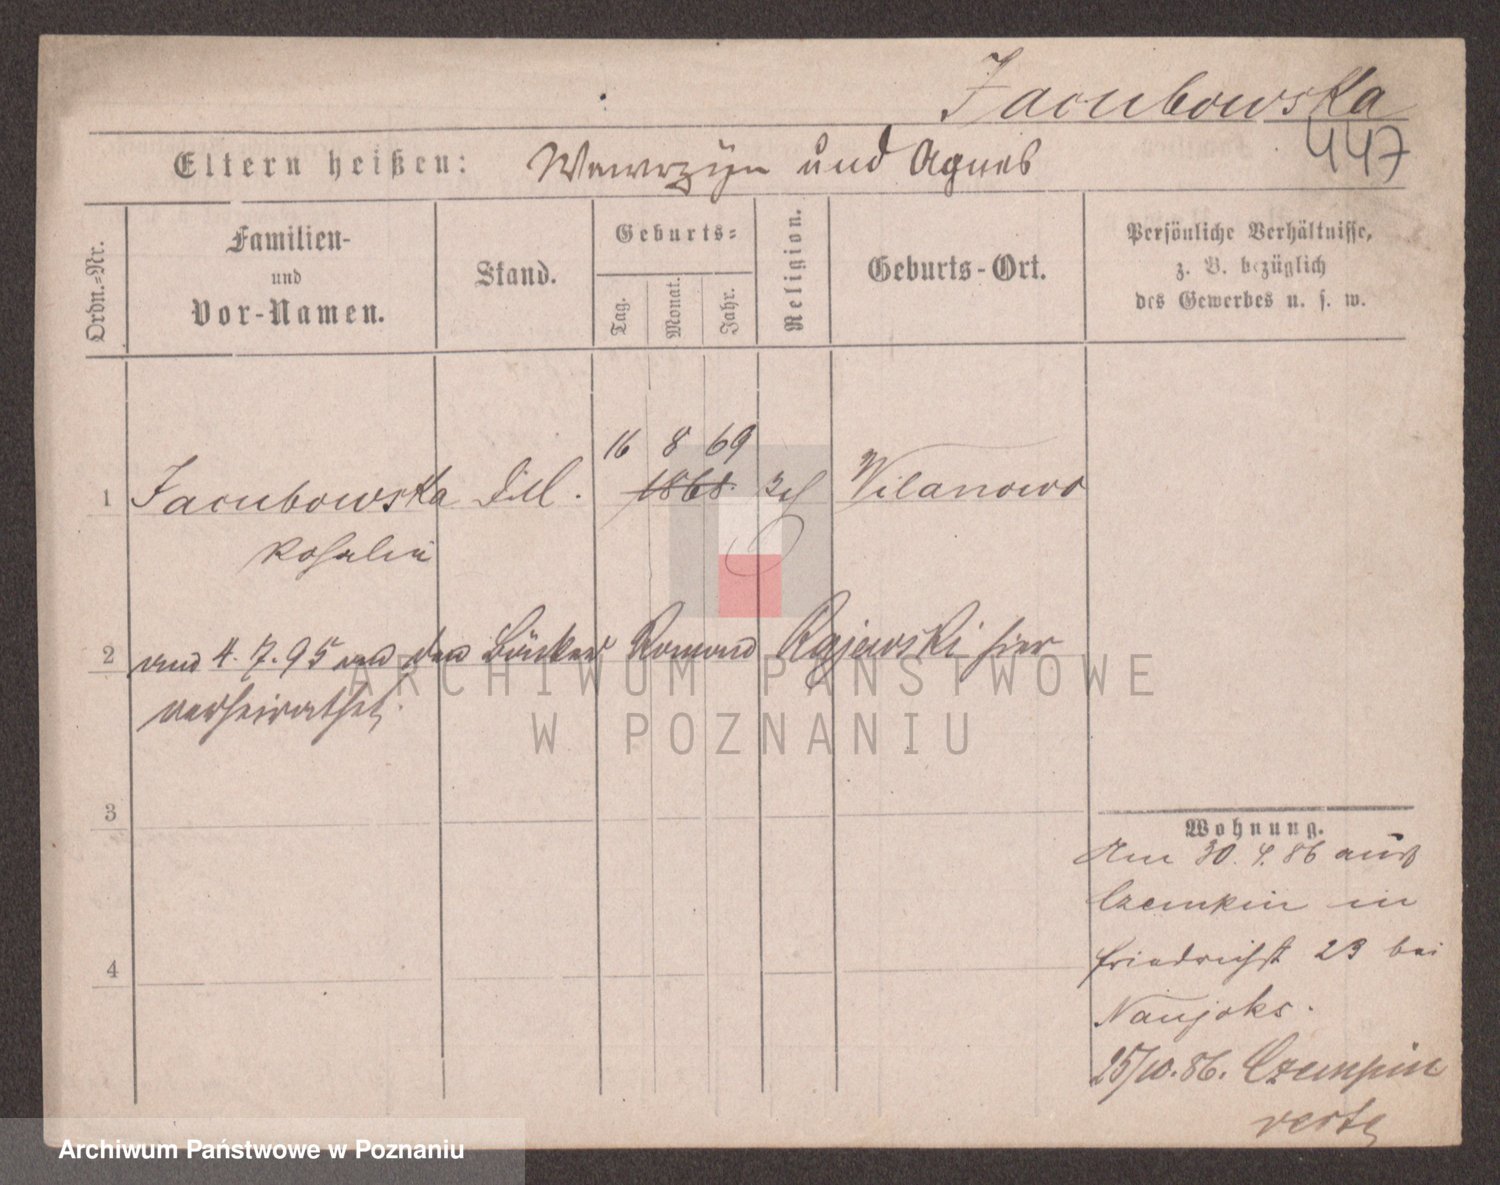 Jacubowska
447
Eltern heißen: Wawrzyn und Agnes
Ordn.-Nr.
Familien-
und
Vor-Namen.
Stand.
Geburts-
Tag.
Monat.
Jahr.
Religion.
Geburts-Ort.
Persönliche Verhältnisse,
z. B. bezüglich
des Gewerbes u. s. w.
16 8 69
1 Jacubowska 1868. Wilanowo
Rosalie
2 am 4.7.95 an den Bäcker Roman Rajewski hier
verheirathet.
ARCHIWUM PAŃSTWOWE
W POZNANIU
3
Wohnung.
Am 30. 4. 86 aus
Czempin in
4
Friedrichst 23 bei
Naujoks.
25/10.86. Czempin
verte
Archiwum Państwowe w Poznaniu